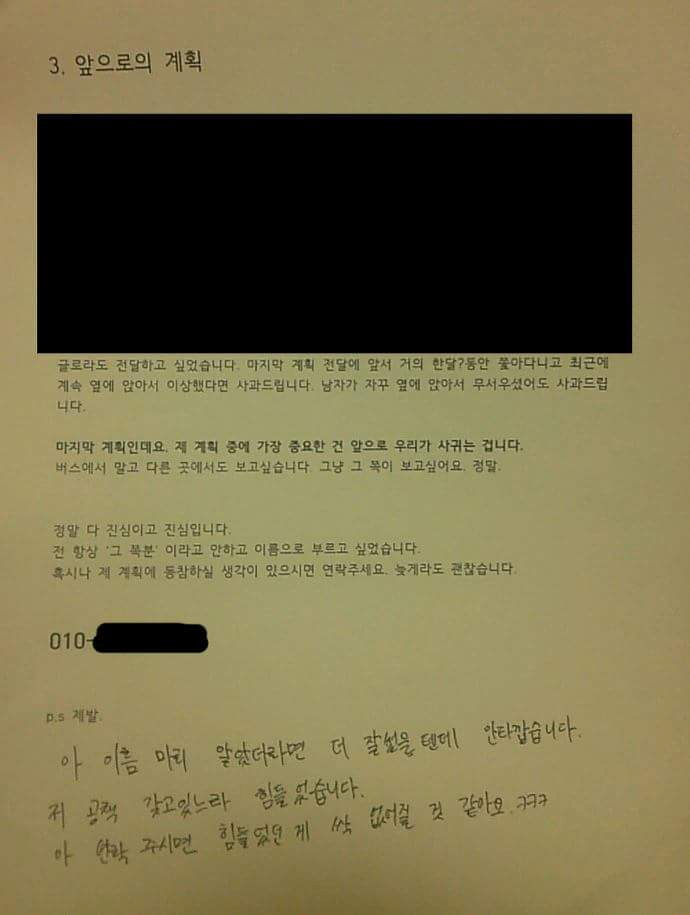 3. 앞으로의 계획
글로라도 전달하고 싶었습니다. 마지막 계획 전달에 앞서 거의 한달?동안 쫓아다니고 최근에
계속 옆에 앉아서 이상했다면 사과드립니다. 남자가 자꾸 옆에 앉아서 무서우셨어도 사과드립
니다.
마지막 계획인데요. 제 계획 중에 가장 중요한 건 앞으로 우리가 사귀는 겁니다.
버스에서 말고 다른 곳에서도 보고싶습니다. 그냥 그 쪽이 보고싶어요. 정말.
정말 다 진심이고 진심입니다.
전 항상 '그 쪽분' 이라고 안하고 이름으로 부르고 싶었습니다.
혹시나 제 계획에 동참하실 생각이 있으시면 연락주세요. 늦게라도 괜찮습니다.
010-
p.s 제발.
아 이름 미리 알았더라면 더 잘썼을텐데 안타깝습니다.
저 공책 갖고있느라 힘들었습니다.
아 연락 주시면 힘들었던 게 싹 없어질 것 같아요.ㅋㅋㅋ